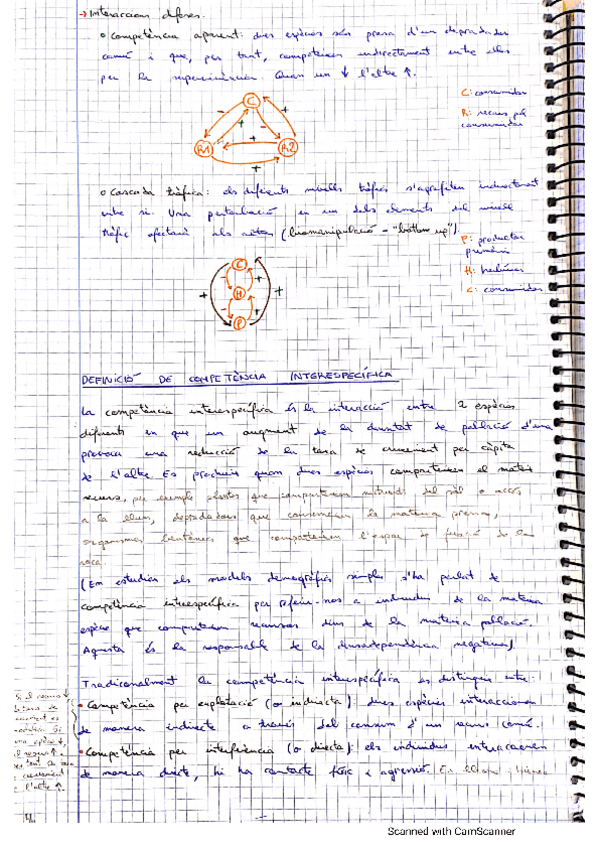 → Interaccions difoses.
o Competència aparent: dues espècies són presa d'un depredador
comú i que, per tant, competeixen indirectament entre elles
per la supervivència. Quan un ↓ l'altre ↑.
C: consumidor
R: recurs pel
consumidor
C
- + - +
R1 + R2
+
o Cascada tròfica: els diferents nivells tròfics s'agrupen indirectament
entre si. Una pertorbació en un dels elements del nivell
tròfic afectarà als altres (biomanipulació - "bottom up").
P: productor
primari
H: herbívor
C: consumidor
C
- +
+ H +
- +
P
DEFINICIÓ DE COMPETÈNCIA INTERESPECÍFICA
La competència interespecífica és la interacció entre 2 espècies
diferents en que un augment de la densitat de població d'una
provoca una reducció de la taxa de creixement per càpita
de l'altre. Es produeix quan dues espècies comparteixen el mateix
recurs, per exemple plantes que comparteixen nutrients del sòl o accés
a la llum, depredadors que consumeixen la mateixa presa,
organismes bentònics que comparteixen l'espai de fixació de la
roca.
(Em estudiar els models demogràfics simples s'ha parlat de
competència intraespecífica per referir-nos a individus de la mateixa
espècie que comparteixen recursos dins de la mateixa població.
Aquesta és la responsable de la densodependència negativa)
Tradicionalment la competència interespecífica es distingeix entre:
• Competència per explotació (o indirecta): dues espècies interaccionen
de manera indirecta a través del consum d'un recurs comú.
• Competència per interferència (o directa): els individus interaccionen
de manera directe, hi ha contacte físic i agressió.
Si el recurs ↓,
la taxa de
creixement es
redueix. Si
una espècie ↓,
el recurs ↑,
per tant la taxa
creixement
l'altre ↑.
Scanned with CamScanner